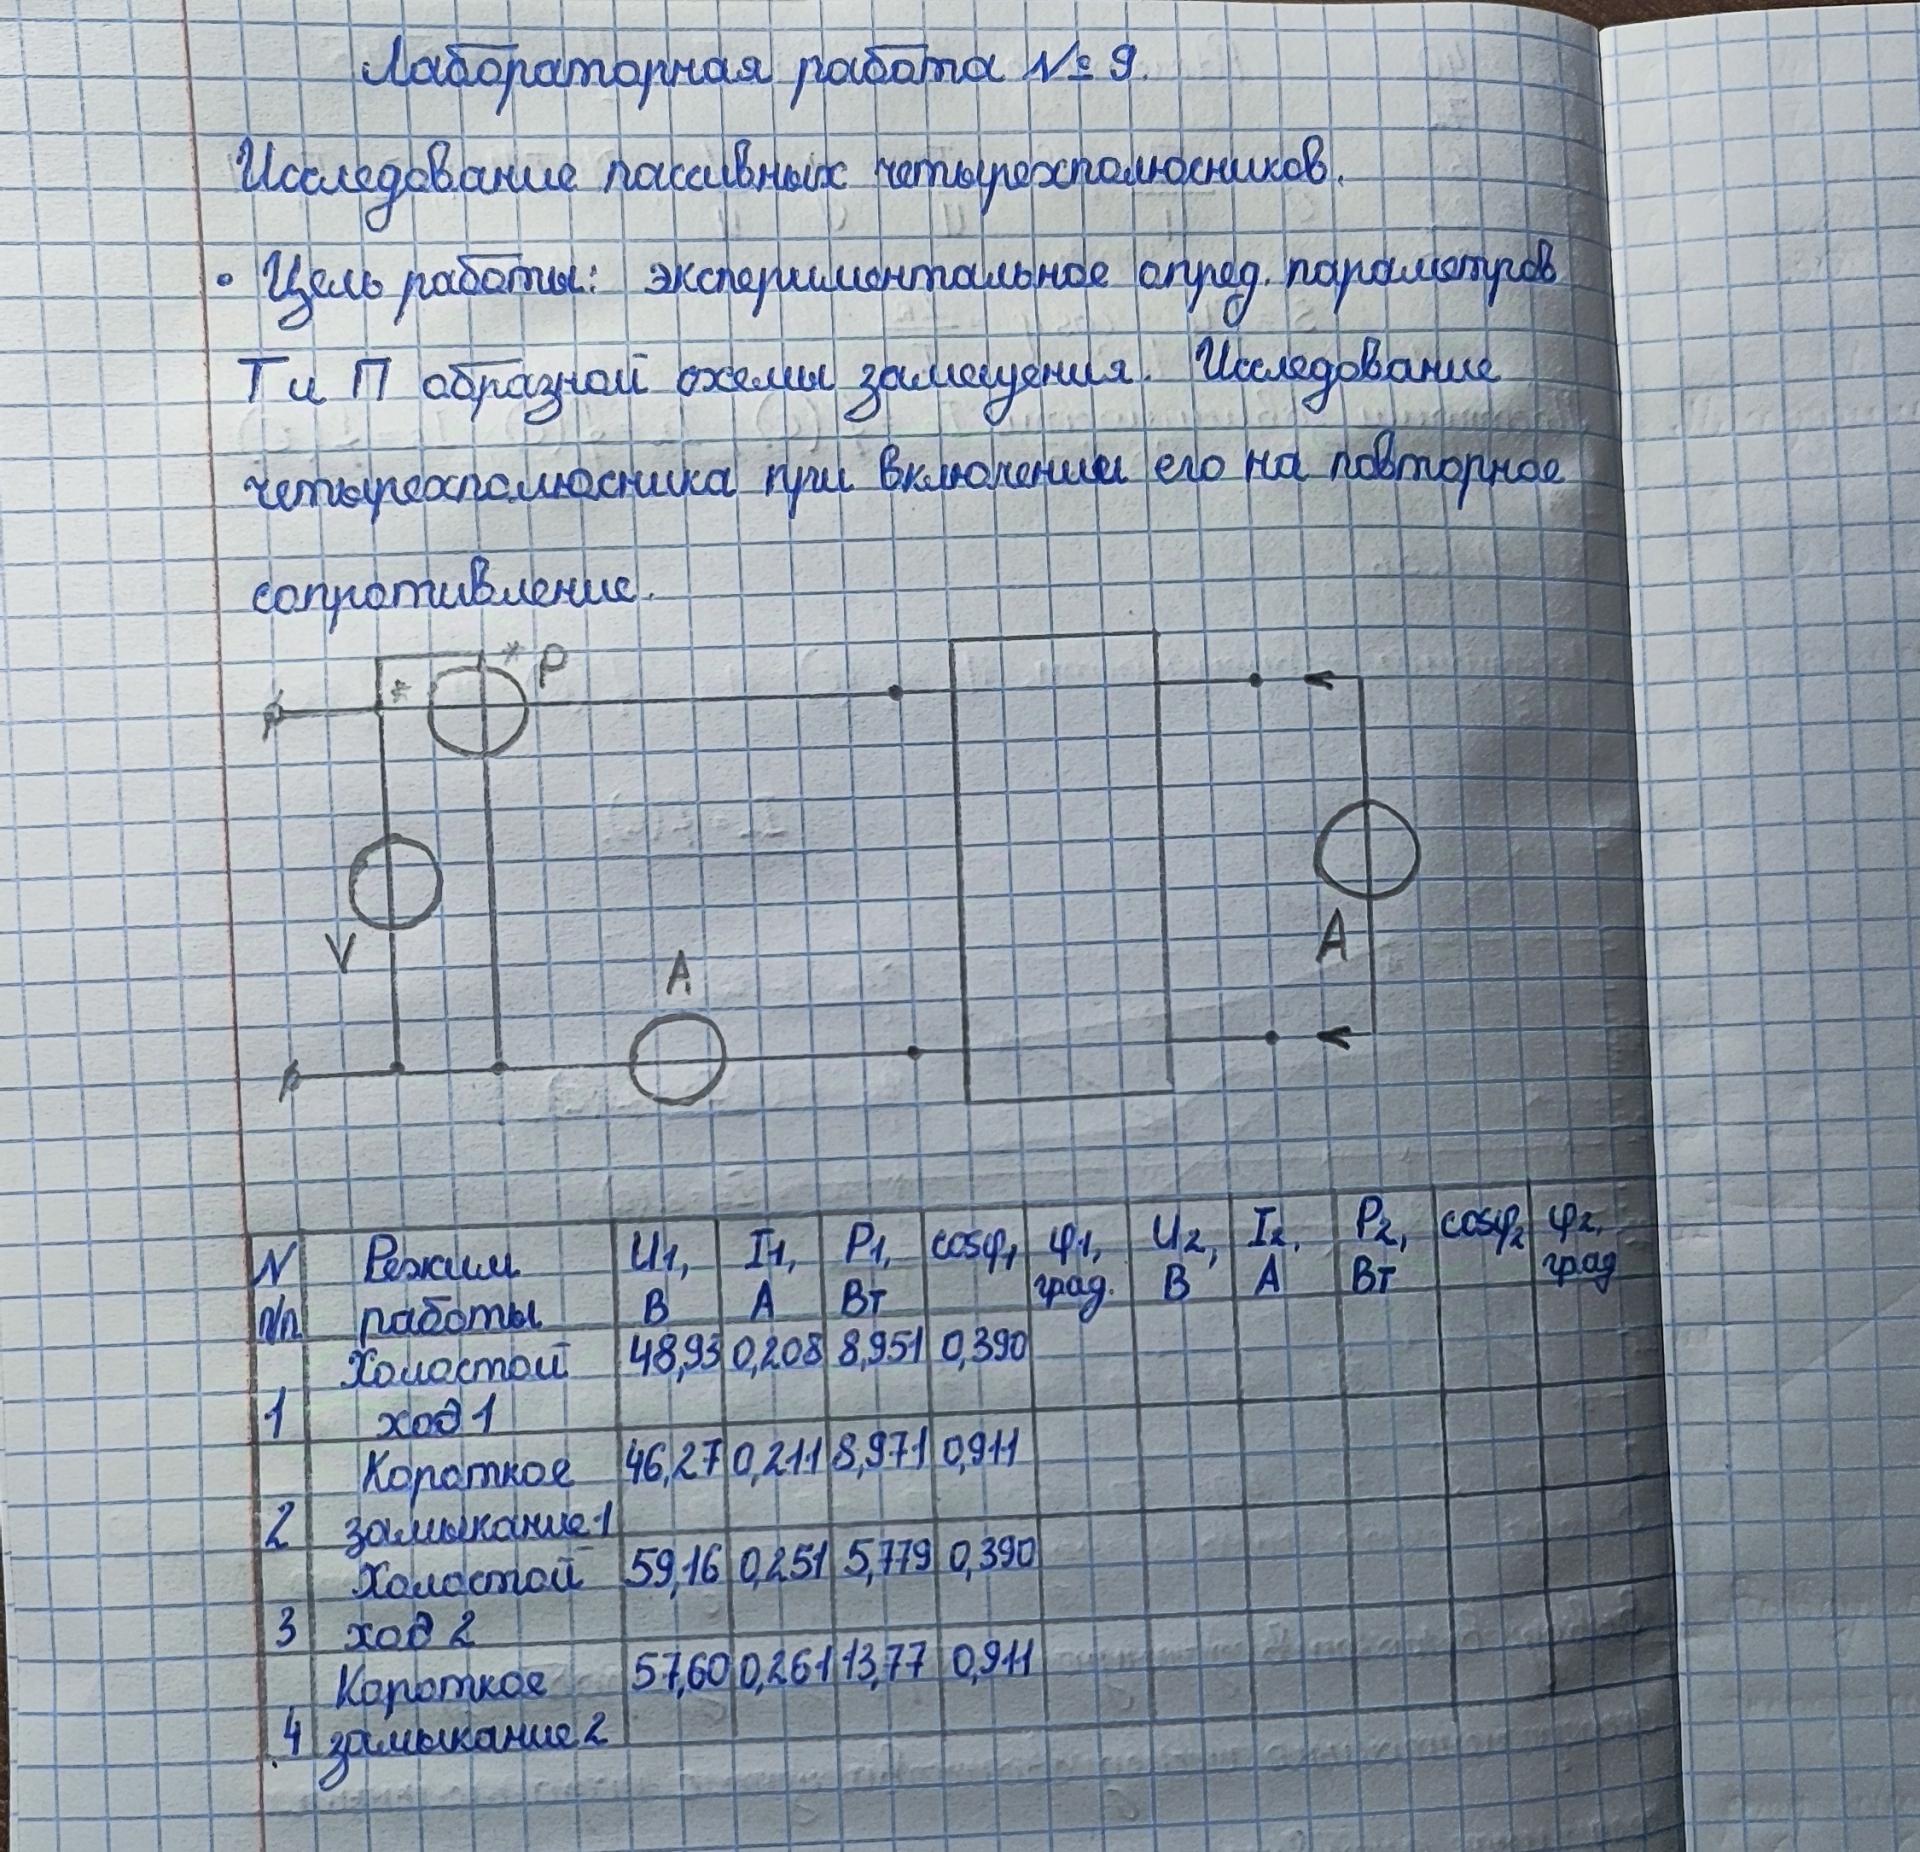 Лабораторная работа № 9.
Исследование пассивных четырехполюсников.
• Цель работы: экспериментальное опред. параметров
Т и П образной схемы замещения. Исследование
четырехполюсника при включении его на повторное
сопротивление.
* P
*
V
A
A
N п/п Режим работы U1, В I1, А P1, Вт cosφ1 φ1, град. U2, В I2, А P2, Вт cosφ2 φ2, град
1 Холостой ход 1 48,93 0,208 8,951 0,390
2 Короткое замыкание 1 46,27 0,211 8,971 0,911
3 Холостой ход 2 59,16 0,251 5,779 0,390
4 Короткое замыкание 2 57,60 0,261 13,77 0,911